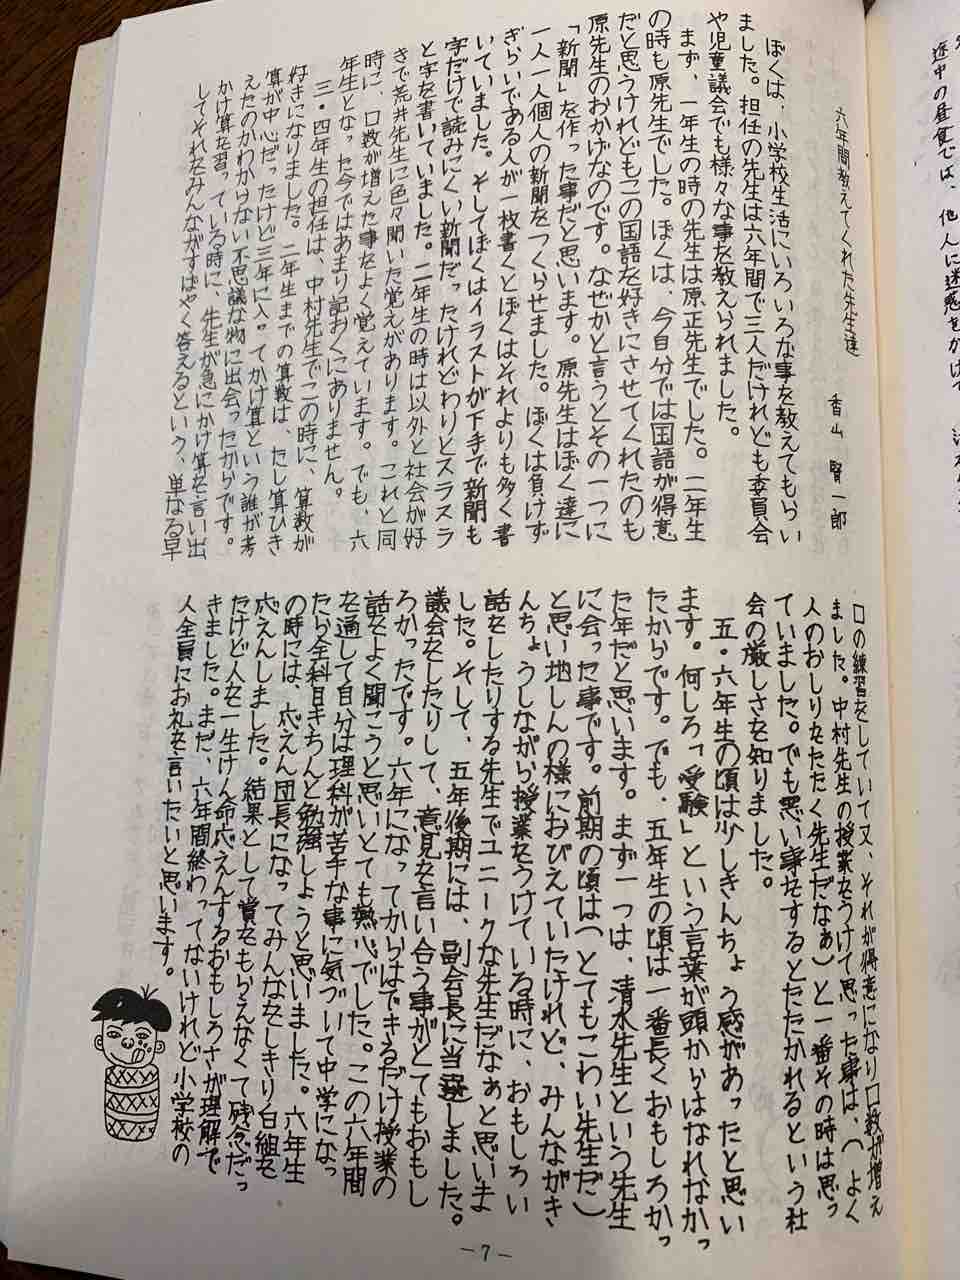 六年間教えてくれた先生達
香山 賢一郎
ぼくは、小学校生活にいろいろな事を教えてもらい
ました。担任の先生は六年間で三人だけれども委員会
や児童議会でも様々な事を教えられました。
まず、一年生の時の先生は原正先生でした。二年生
の時も原先生でした。ぼくは、今自分では国語が得意
だと思うけれどもこの国語を好きにさせてくれたのも
原先生のおかげなのです。なぜかと言うとその一つに
「新聞」を作った事だと思います。原先生はぼく達に
一人一人個人の新聞をつくらせました。ぼくは負けず
ぎらいである人が一枚書くとぼくはそれよりも多く書
いていました。そしてぼくはイラストが下手で新聞も
字だけで読みにくい新聞だったけれどわりとスラスラ
と字を書いていました。二年生の時は以外と社会が好
きで荒井先生に色々聞いた覚えがあります。これと同
時に、口数が増えた事をよく覚えています。でも、六
年生となった今ではあまり記おくにありません。
三・四年生の担任は、中村先生でこの時に、算数が
好きになりました。二年生までの算数は、たし算ひき
算が中心だったけど三年に入ってかけ算という誰が考
えたのかわからない不思議な物に出会ったからです。
かけ算を習っている時に、先生が急にかけ算を言い出
してそれをみんながすばやく答えるという、単なる早
口の練習をしていて又、それが得意になり口数が増え
ました。中村先生の授業をうけて思った事は、(よく
人のおしりをたたく先生だなぁ)と一番その時は思っ
ていました。でも悪い事をするとたたかれるという社
会の厳しさを知りました。
五・六年生の頃は少しきんちょう感があったと思い
ます。何しろ「受験」という言葉が頭からはなれなかっ
たからです。でも、五年生の頃は一番長くおもしろかっ
た年だと思います。まず一つは、清水先生という先生
に会った事です。前期の頃は(とてもこわい先生だ)
と思い地しんの様におびえていたけれど、みんながき
んちょうしながら授業をうけている時に、おもしろい
話をしたりする先生でユニークな先生だなぁと思いま
した。そして、五年後期には、副会長に当選しました。
議会をしたりして、意見を言い合う事がとてもおもし
ろかったです。六年になってからはできるだけ授業の
話をよく聞こうと思いとても熱心でした。この六年間
を通して自分は理科が苦手な事に気づいて中学になっ
たら全科目きちんと勉強しようと思いました。六年生
の時には、応えん団長になってみんなをしきり白組を
応えんしました。結果として賞をもらえなくて残念だっ
たけど人を一生けん命応えんするおもしろさが理解で
きました。まだ、六年間終わってないけれど小学校の
人全員にお礼を言いたいと思います。
－7－
途中の昼食では、他人に迷惑をかけて